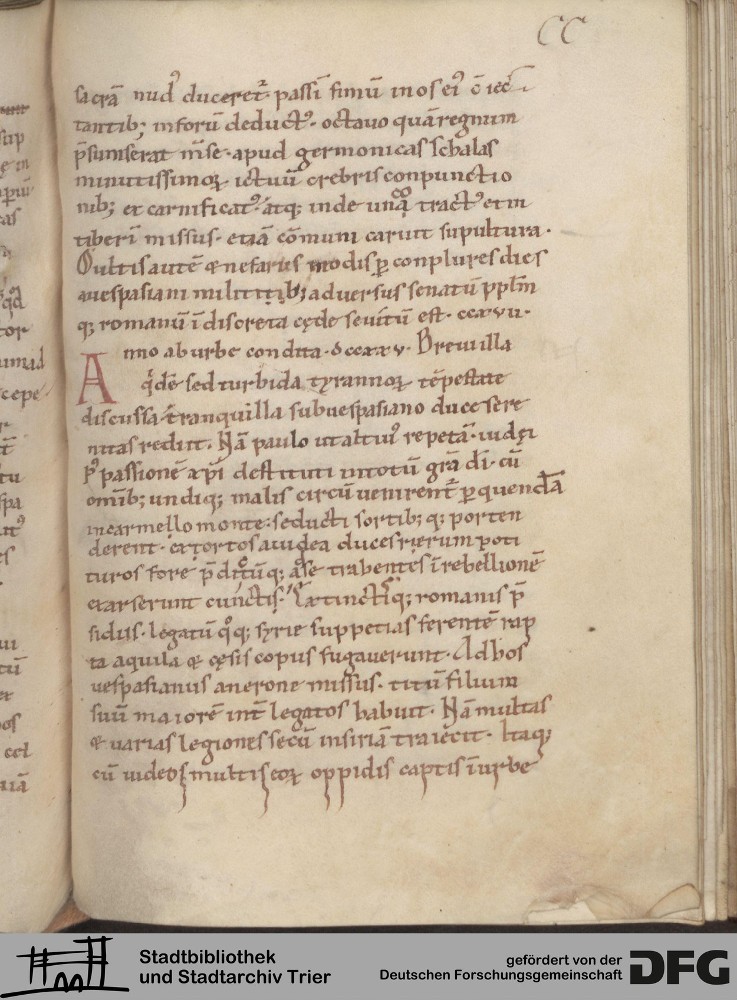 CC
sacrā nudꝰ duceret᷑· passī fimū in os eiꝰ ō iec
tantib; in forū deductꝰ· octauo quā regnum
p̄sumserat m̄se· apud germonicas schalas
minutissimoꝝ ictuū crebris conpunctio
nib; et carnificatꝰ· atq; inde tractꝰ et in
tiberī missus· etiā cōmuni caruit sepultura·
Multis autē & nefariis modis ꝑ conplures dies
a uespasiani militib; aduersus senatū pplm̄
q; romanū īdiscreta cęde seuitū est· ccxvii·
Anno ab urbe condita· dcccxxv· Breui illa
q̇dē sed turbida tyrannoꝝ tēpestate
discussa· tranquilla sub uespasiano duce sere
nitas rediit· Nā paulo ut altiuꝰ repetā· iudęi
pꝰ passionē xp̄i destituti in totū gr̄a dī· cū
omīb; undiq; malis circūuenirent᷑ ꝑ quendā
in carmello monte· seducti sortib; q; porten
derent· exortos a iudea duces rerum poti
turos fore p̄dictūq; ad se trahentes ī rebellionē
exarserunt cunctis· extinctisq; romanis p̄
sidiis· legatū qͦq; syrie suppetias ferentē rap
ta aquila & cęsis copiis fugauerunt· Ad hos
uespasianus a nerone missus· titū filium
suū maiorē int̄ legatos habuit· Nā multas
& uarias legiones secū in siriā traiecit· Itaq;
cū iudeos multis eoꝝ oppidis captis ī urbe
Stadtbibliothek
und Stadtarchiv Trier
gefördert von der
Deutschen Forschungsgemeinschaft
DFG